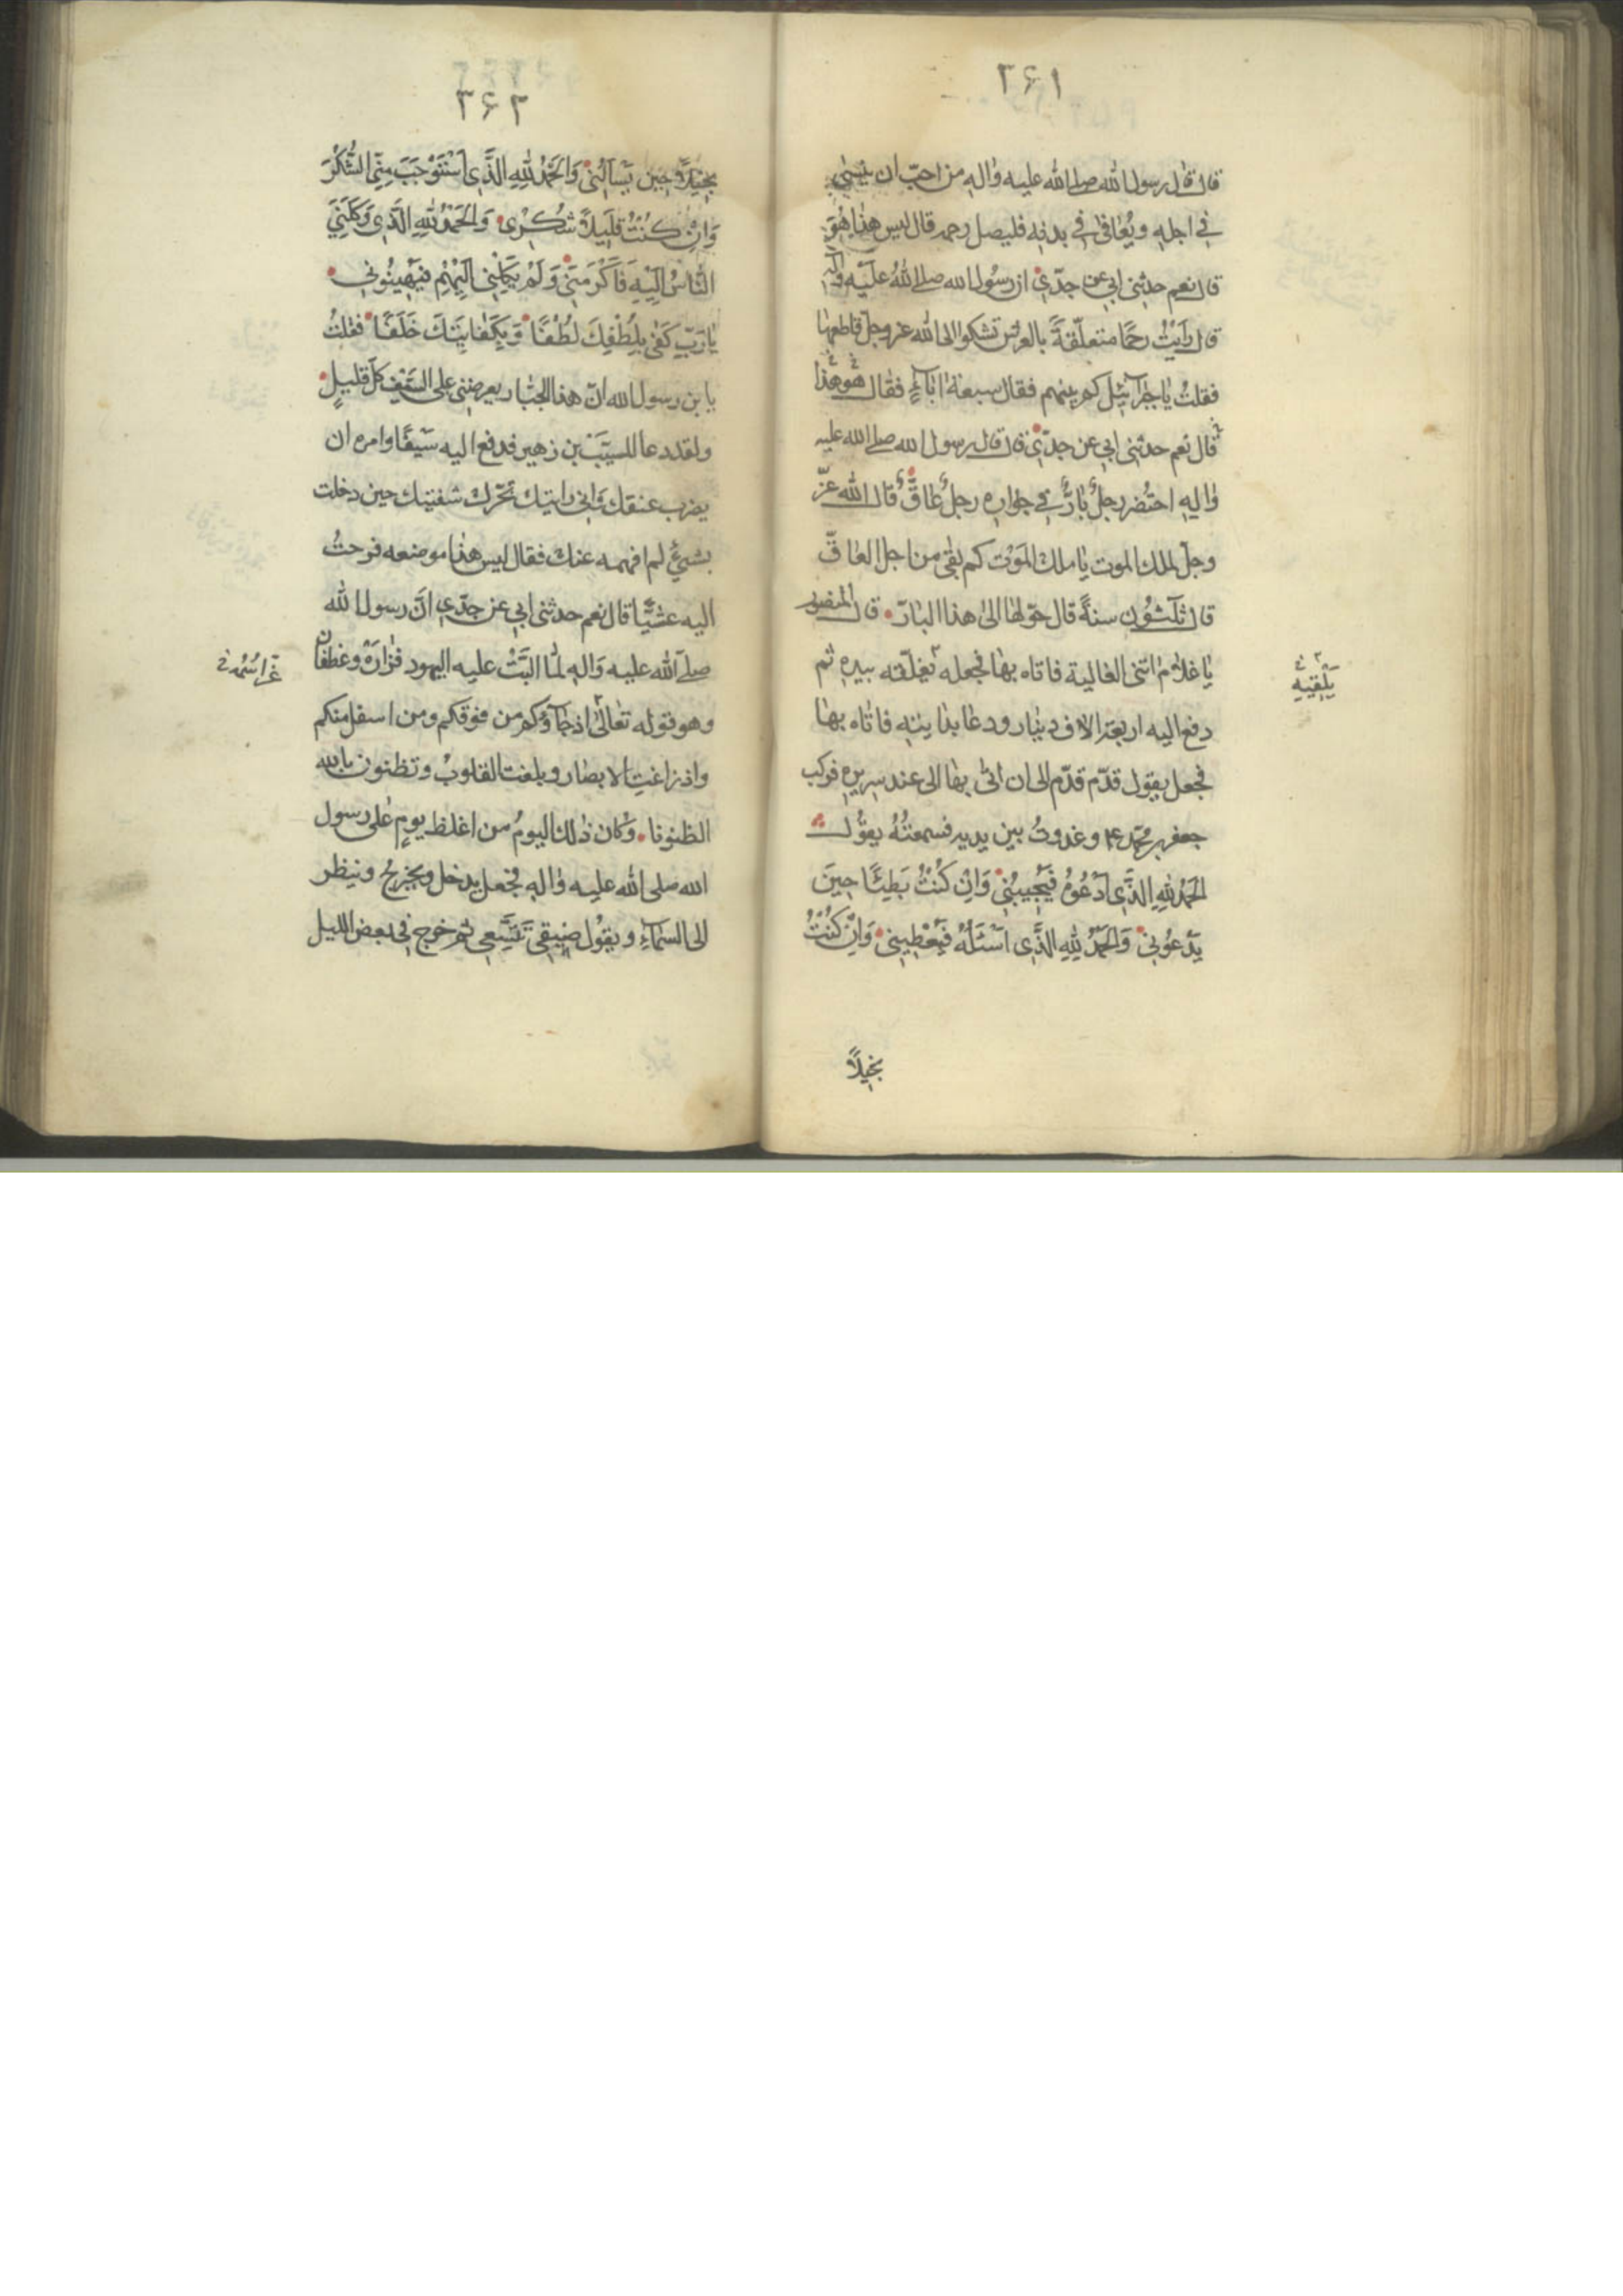 ۳۶۱
قال قال رسول الله صلى الله عليه واله من احبّ ان ينسئ
في اجله ويُعافىٰ في بدنه فليصل رحمه قال ليس هذا هُوَ
قال نعم حدثنى ابي عن جدّي ان رسُول الله صلى اللهُ عليْه واله
قال رَأيْتُ رحمًا متعلّقةً بالعرش تشكوا الى الله عز وجلّ قاطعها
فقلتُ يا جبرآئيل كم بينهم فقال سبعة اٰبآءٍ فقال هو هذا
قال نعم حدثنى ابي عن جدّي قال قال رسول الله صلى الله عليه
واٰلهِ احتُضر رجلٌ بارٌّ في جواره رجلٌ عاقٌّ قال الله عزّ
وجلّ لملك الموت يا ملك المَوْت كم بقي من اجل العاقّ
قال ثلٰثون سنةً قال حوّلها الىٰ هذا البارّ قال المنصور
يا غلام ائتنى الغالية فاتاه بها فجعله يغلّفه بيده ثم
يلقيه
دفع اليه اربعة الاف دينار ودعا بدابته فاتاه بها
فجعل يقول قدّم قدّم الى ان اتى بها الى عند سريره فركب
جعفر بن محمّد ع وغدوتُ بين يديه فسمعتُهُ يقوُل
الحَمْدُ لِلّٰهِ الذَّي اَدْعُوهُ فَيُجِيبُنِي وَاِنْ كُنْتُ بَطِيئًا حِينَ
يَدْعُونِي وَالْحَمْدُ لِلّٰهِ الذَّي اَسْئَلُهُ فَيُعْطِينِي وَاِنْ كُنْتُ
بخيلاً
۳۶۲
بَخِيلاً حِينَ يَسْأَلُنِي وَالْحَمْدُ لِلّٰهِ الذَّي اسْتَوْجَبَ مِنِّى الشُّكْرَ
وَاِنْ كُنْتُ قَلِيلاً شُكْرِى وَالْحَمْدُ لِلّٰهِ الذَّي وَكَلَنِيَ
النَّاسُ اِلَيْهِ فَاَكْرَمَنِي وَلَمْ يَكِلْنِي اِلَيْهِمْ فَيُهِينُونِي
يٰا رَبِّ كَفىٰ بِلُطْفِكَ لُطْفًا وَبِكِفٰايَتِكَ خَلَفًا فقلتُ
يا بن رسول الله انّ هذا الجبّار يعرضنى على السّيْف كلّ قليلٍ
ولقد دعا المسيّبَ بن زهير فدفع اليه سَيفًا وامره ان
يضرب عنقك وَاني رايتك تحرّك شفتيك حين دخلت
بشيءٍ لم افهمه عنك فقال ليس هذا موضعه فرحتُ
اليه عشيًّا قال نعم حدثنى ابي عن جدّي انّ رسول الله
صلّى الله عليه وَاله لمّا البّتْ عليه اليهود فزارَة وغطفان
وهو قوله تعالىٰ اذ جآؤكم من فوقكم ومن اسفل منكم
واذ زاغت الابصار وبلغت القلوبُ وتظنون بالله
الظنونا وكان ذلك اليومُ من اغلظ يومٍ على رسول
الله صلى الله عليه واله فجعل يدخل ويخرج وينظر
الى السماءِ ويقُول ضيقي تتّسعي ثم خرج في بعض الليل